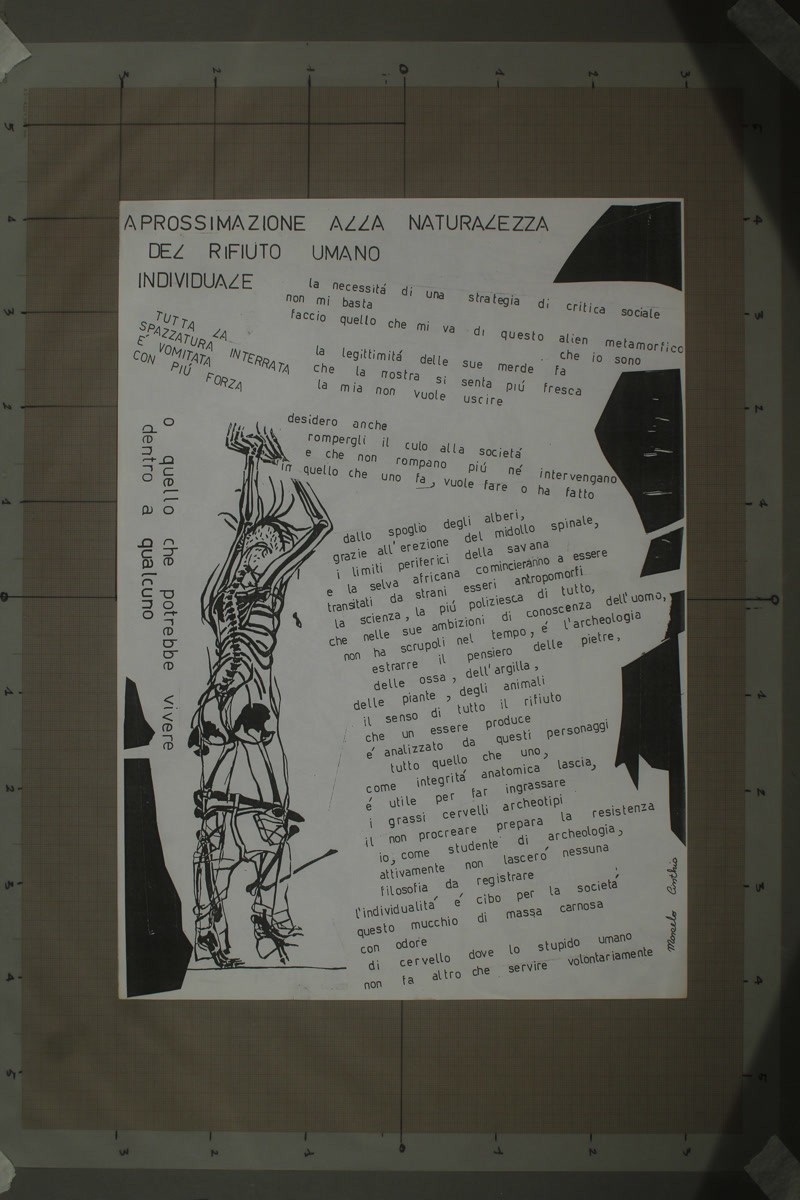 APROSSIMAZIONE ALLA NATURALEZZA
DEL RIFIUTO UMANO
INDIVIDUALE
la necessitá di una strategia di critica sociale
non mi basta
faccio quello che mi va di questo alien metamorfico
che io sono
la legittimitá delle sue merde fa
che la nostra si senta piú fresca
la mia non vuole uscire
TUTTA LA
SPAZZATURA INTERRATA
É VOMITATA
CON PIÚ FORZA
desidero anche
rompergli il culo alla societá
e che non rompano piú né intervengano
in quello che uno fa, vuole fare o ha fatto
o quello che potrebbe vivere
dentro a qualcuno
dallo spoglio degli alberi,
grazie all'erezione del midollo spinale,
i limiti periferici della savana
e la selva africana comincieranno a essere
transitati da strani esseri antropomorfi
la scienza, la piú poliziesca di tutto,
che nelle sue ambizioni di conoscenza dell'uomo,
non ha scrupoli nel tempo, é l'archeologia
estrarre il pensiero delle pietre,
delle ossa, dell'argilla,
delle piante, degli animali
il senso di tutto il rifiuto
che un essere produce
é analizzato da questi personaggi
tutto quello che uno,
come integritá anatomica lascia,
é utile per far ingrassare
i grassi cervelli archeotipi
il non procreare prepara la resistenza
io, come studente di archeologia,
attivamente non lasceró nessuna
filosofia da registrare
l'individualitá é cibo per la societá
questo mucchio di massa carnosa
con odore
di cervello dove lo stupido umano
non fa altro che servire volontariamente